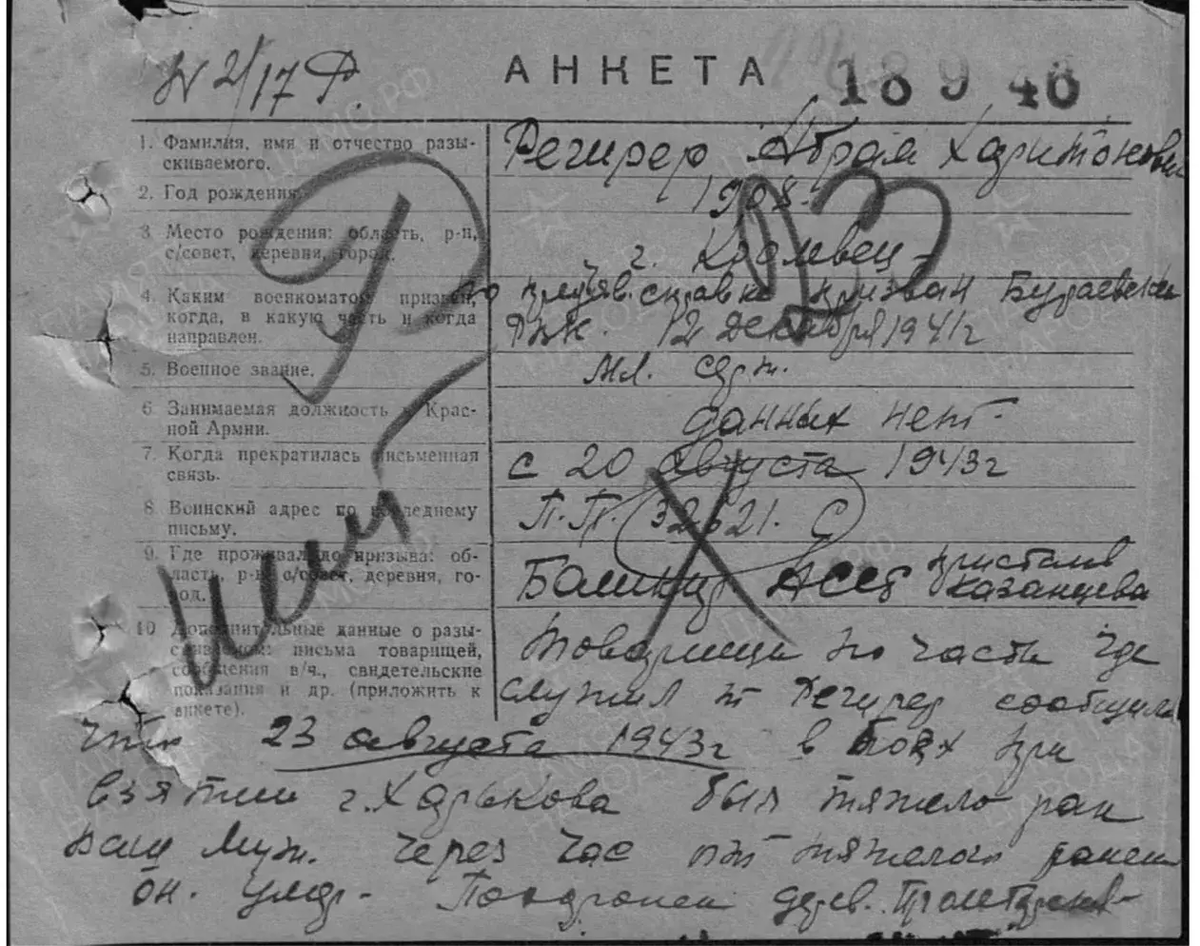 N 2/17 Ф. АНКЕТА 18 9 46
1. Фамилия, имя и отчество разы-
скиваемого.
Регирер Абрам Харитонович
2. Год рождения.
1908.
3. Место рождения: область, р-н,
с/совет, деревня, город.
г. Кролевец
4. Каким военкоматом призван,
когда, в какую часть и когда
направлен.
по предъяв. справке призван Бураевским
РВК. 12 декабря 1941 г
5. Военное звание.
мл. серж.
6. Занимаемая должность в Крас-
ной Армии.
данных нет.
7. Когда прекратилась письменная
связь.
с 20 августа 1943 г
8. Воинский адрес по последнему
письму.
П.П. 32621. С
9. Где проживал до призыва: об-
ласть, р-н, с/совет, деревня, го-
род.
Башкир. АССР пристань
Казанцева
10. Дополнительные данные о разы-
скиваемом: письма товарищей,
сообщения в/ч., свидетельские
показания и др. (приложить к
анкете).
Товарищи по части где
служил т Регирер сообщили
что 23 августа 1943 г в боях при
взятии г. Харькова был тяжело ран
Ваш муж. Через час от тяжелой ранен
он. умер. Похоронен дерев.